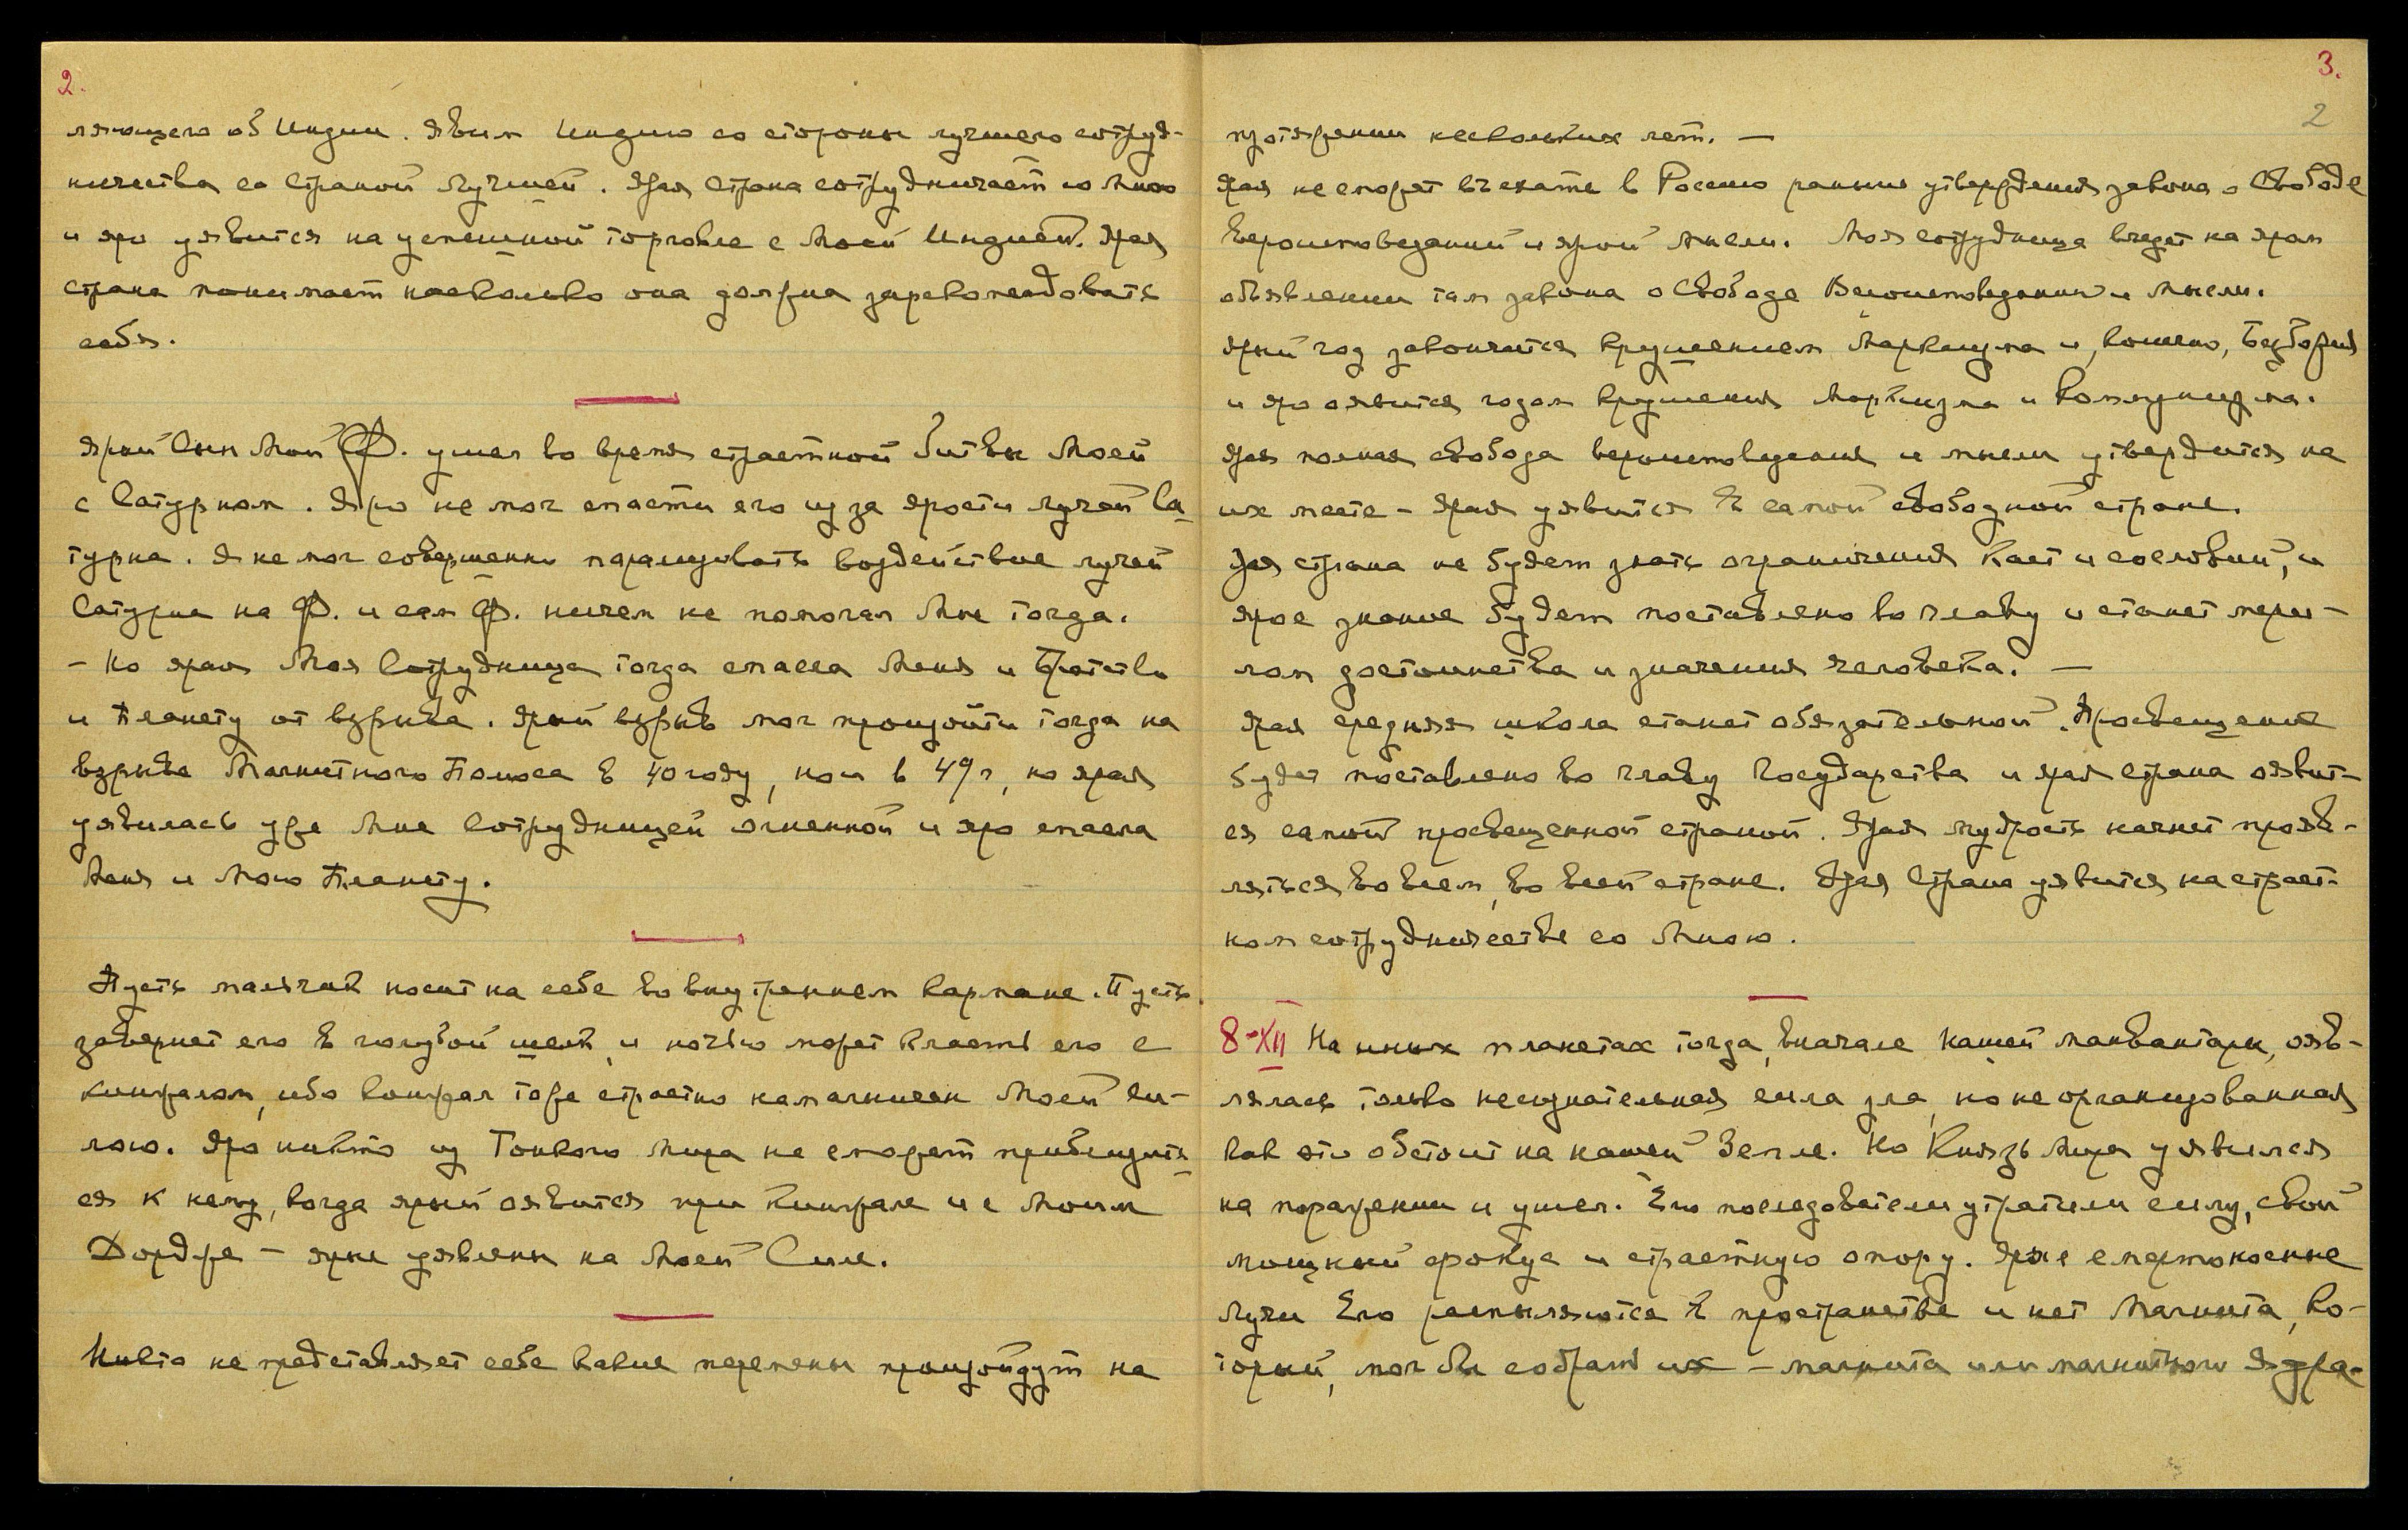 2.
ляющего об Индии. Явим Индию со стороны лучшего сотруд-
ничества со Страной Лучшей. Ярая Страна сотрудничает со Мною
и яро уявится на успешной торговле с Моей Индией. Ярая
страна понимает насколько она должна зарекомендовать
себя.
Ярый Сын Мой Ф. ушел во время страстной битвы Моей
с Сатурном. Яро не мог спасти его из за ярости лучей Са-
турна. Я не мог совершенно парализовать воздействие лучей
Сатурна на Ф. и сам Ф. ничем не помогал Мне тогда.
- Но ярая Моя Сотрудница тогда спасла Меня и Братство
и Планету от взрыва. Ярый взрыв мог произойти тогда на
взрыве Магнитного Полюса в 40 году, но и в 49 г, но ярая
уявилась уже Мне Сотрудницей огненной и яро спасла
Меня и Мою Планету.
Пусть мальчик носит на себе во внутреннем кармане. Пусть
завернет его в голубой шелк, и ночью может класть его с
кинжалом, ибо кинжал тоже страстно намагничен Моей си-
лою. Яро никто из Тонкого Мира не сможет приблизить-
ся к нему, когда ярый оявится при кинжале и с Моим
Дордже - ярые уявлены на Моей Силе.
Никто не представляет себе какие перемены произойдут на
3.
2
протяжении нескольких лет. —
Ярая не сможет въехать в Россию раньше утверждения закона о Свободе
Вероисповеданий и ярой мысли. Моя сотрудница въедет на яром
объявлении там закона о Свободе Вероисповедания и Мысли.
Ярый год закончится крушением Марксизма и, конечно, Безбожия
и яро оявится годом крушения Марксизма и Коммунизма.
Ярая полная свобода вероисповедания и мысли утвердится на
их месте - Ярая уявится в самой свободной стране.
Ярая страна не будет знать ограничения Каст и сословий, и
ярое знание будет поставлено во главу и станет мери-
лом достоинства и значения человека. —
Ярая средняя школа станет обязательной. Просвещение
будет поставлено во главу Государства и ярая страна оявит-
ся самой просвещенной страной. Ярая мудрость начнет прояв-
ляться во всем, во всей стране. Ярая Страна уявится на страст-
ном сотрудничестве со Мною.
8-XII На иных планетах тогда, вначале нашей манвантары, ояв-
лялась только несознательная сила зла, но не организованная
как это обстоит на нашей Земле. Но Князь Мира уявился
на поражении и ушел. Его последователи утратили силу, свой
мощный фокус и страстную опору. Ярые смертоносные
лучи Его распыляются в пространстве и нет Магнита, ко-
торый, мог бы собрать их - магнита или магнитного Ядра.